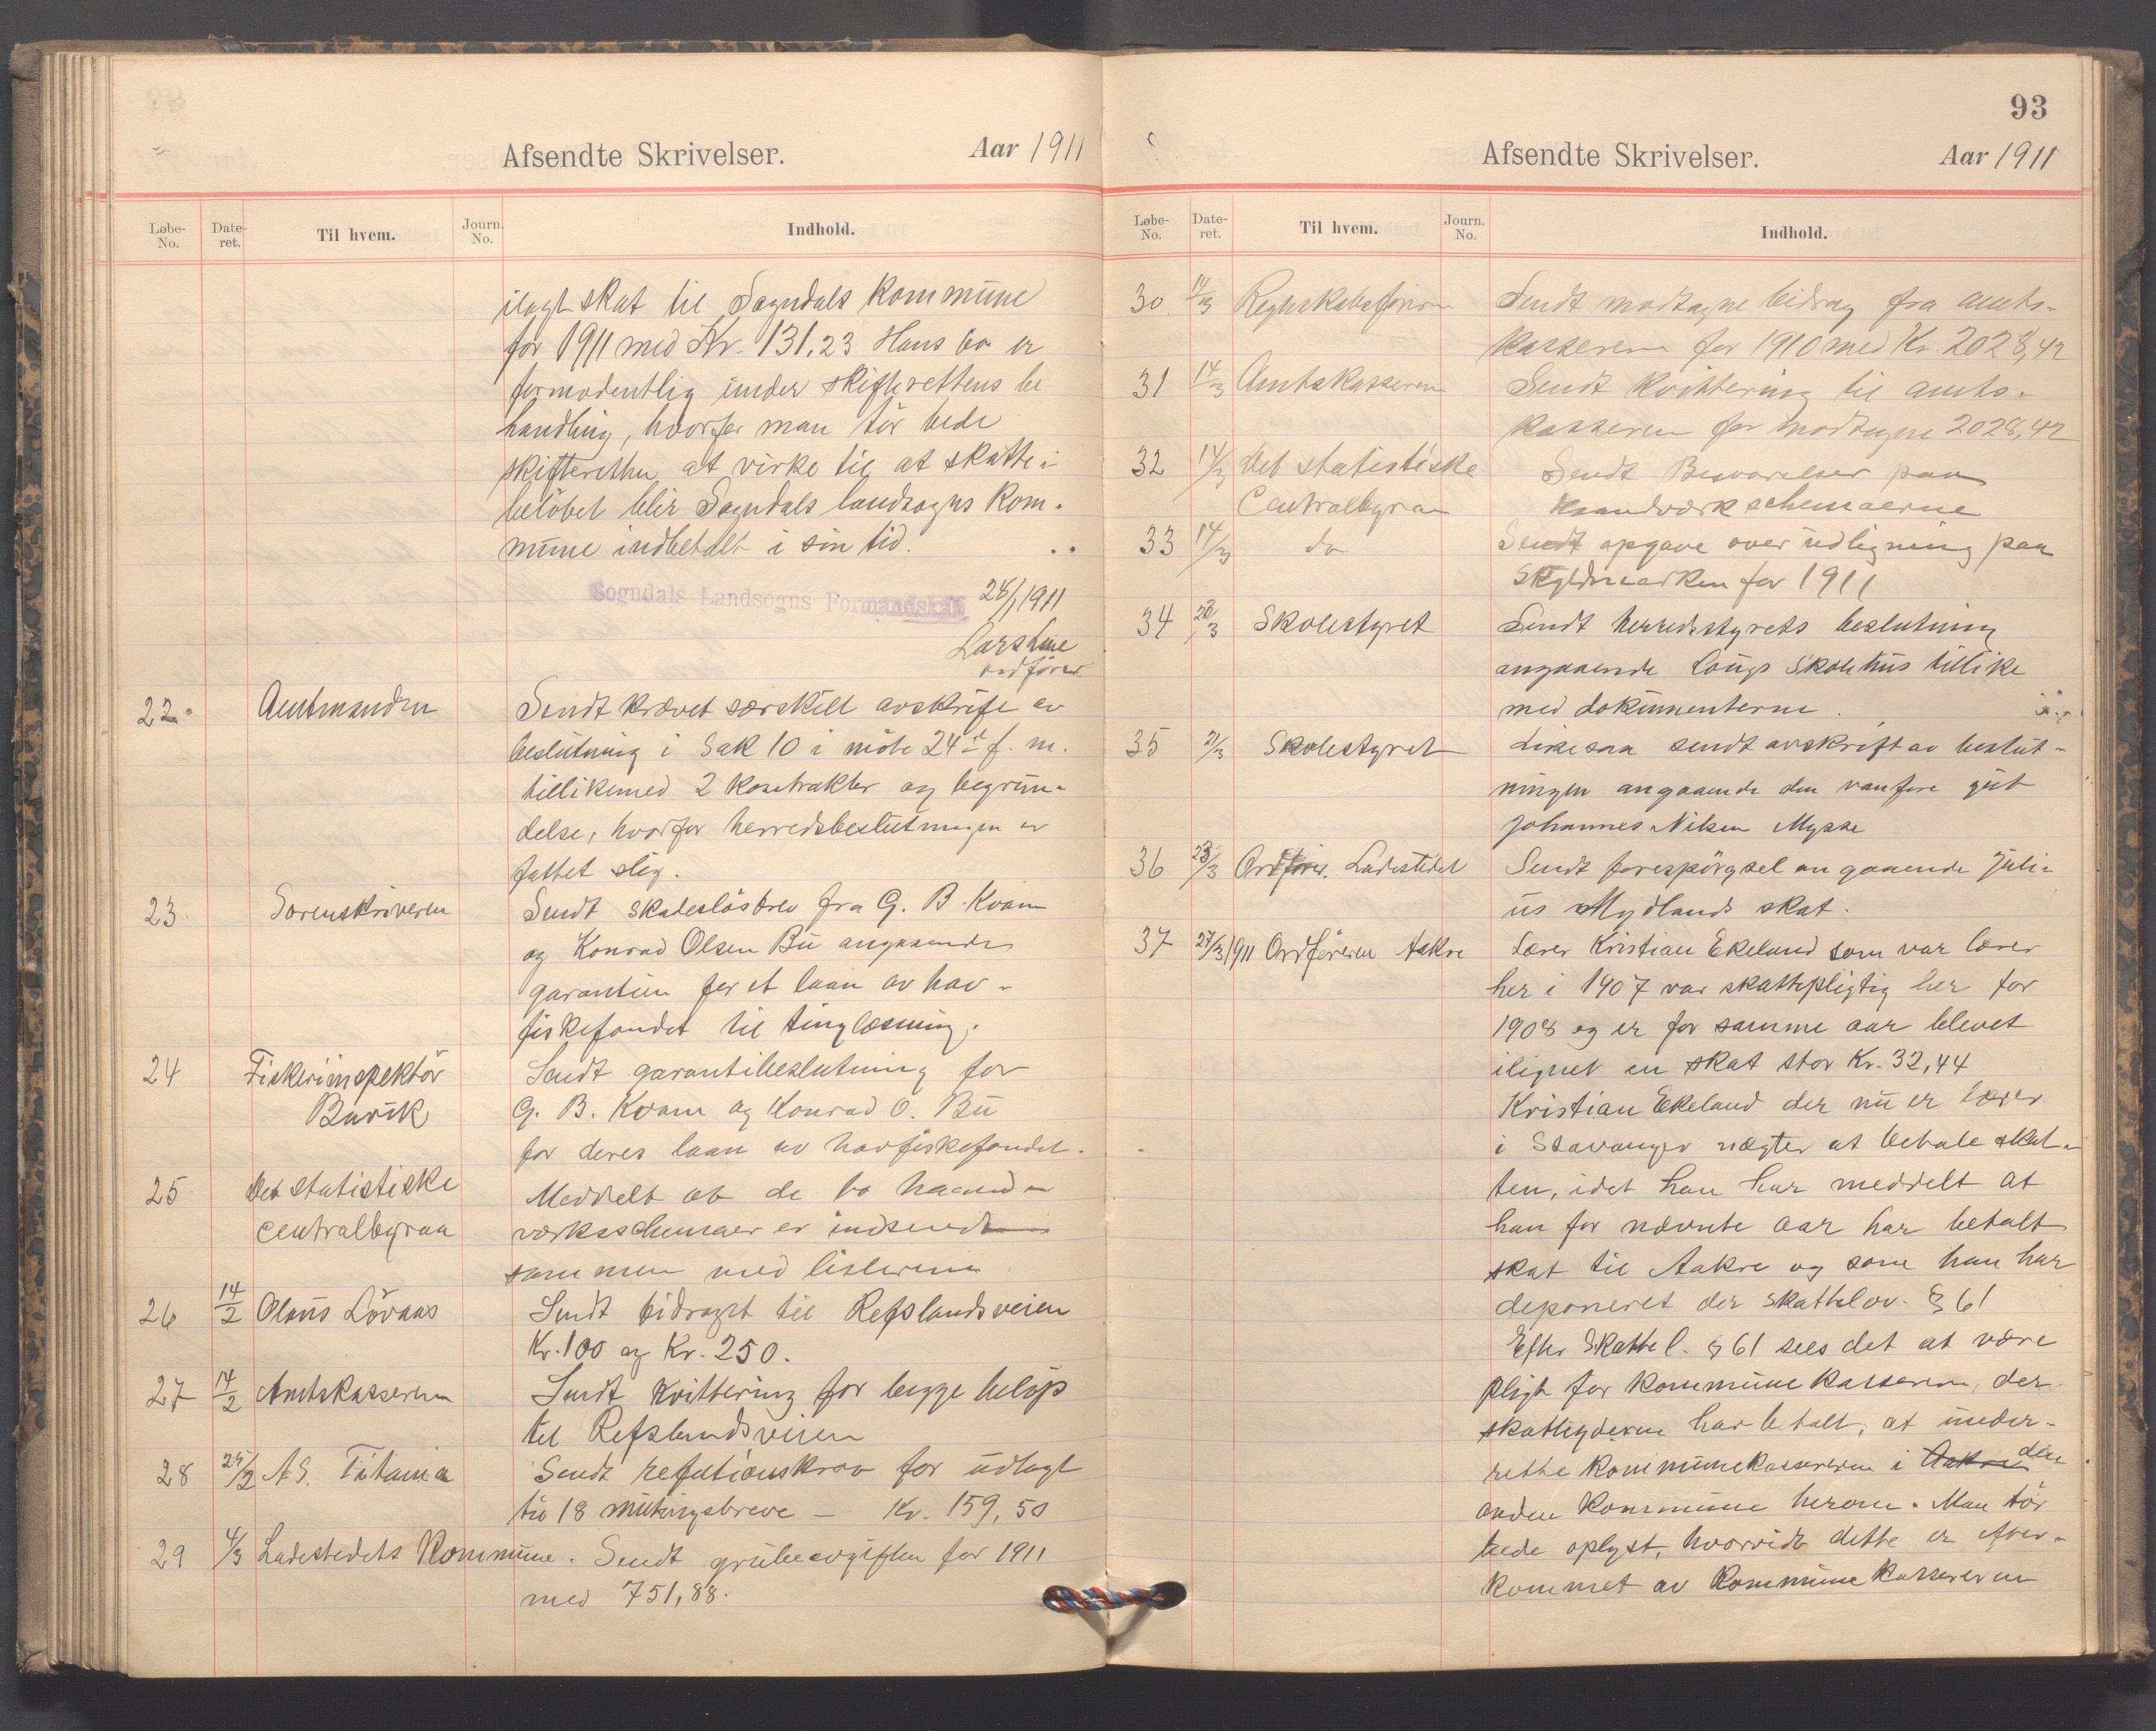 Afsendte Skrivelser. Aar 1911
Løbe-No. Date-ret. Til hvem. Journ. No. Indhold.
ilagt skat til Sogndals kommune
for 1911 med Kr. 131,23 Hans bo er
formodentlig under skifterettens be
handling, hvorfor man tör bede
skifteretten at virke til at skatte i
belöbet blir Sogndals landsogns kom-
mune indbetalt i sin tid.
Sogndals Landsogns Formandskab 28/1 1911
Lars Line
ordförer
22. Amtmanden Sendt krævet særskilt avskrift av
beslutning i Sak 10 i möte 24de f. m.
tillikemed 2 kontrakter og begrun-
delse, hvorfor herredsbeslutningen er
fattet slig.
23. Sorenskriveren Sendt skadeslösbrev fra G. B. Kvam
og Konrad Olsen Bu angaaende
garantien for et laan av hav-
fiskefondet til tinglæsning.
24 Fiskeriinspektör Sendt garantibeslutning for
Buvik G. B. Kvam og Konrad O. Bu
for deres laan av havfiskefondet.
25 Det statistiske Meddelt at de to haand-
centralbyraa værksschemaer er indsendt
sammen med listerne
26 14/2 Olaus Lövaas Sendt bidraget til Refslandsveien
Kr. 100 og Kr. 250.
27 14/2 Amtskasseren Sendt kvittering for begge belöp
til Refslandsveien
28 25/2 A.S. Titania Sendt refutionskrav for udlagt
til 18 mutingsbreve — Kr. 159,50
29 4/3 Ladestedets Kommune. Sendt grubeavgiften for 1911
med 751,88.
93
Afsendte Skrivelser. Aar 1911
Løbe-No. Date-ret. Til hvem. Journ. No. Indhold.
30 14/3 Regnskabsföreren Sendt modtagne bidrag fra amts-
kasseren for 1910 med Kr. 2028,42
31 14/3 Amtskasseren Sendt kvittering til amts-
kasseren for modtagne 2028,42
32 14/3 det statistiske Sendt Besvarelser paa
Centralbyraa haandværkschemaerne
33 14/3 do Sendt opgave over udligning paa
Skyldmarken for 1911
34 20/3 Skolestyret Sendt herredsstyrets beslutning
angaaende Lougs Skolehus tillike
med dokumenterne.
35 21/3 Skolestyret Likesaa sendt avskrift av beslut-
ningen angaaende den vanföre gut
Johannes Nilsen Mysse
36 23/3 Ordförer. Ladestedet Sendt forespörgsel angaaende Juli-
us Mydlands skat.
37 27/3 1911 Ordföreren Aakre Lærer Kristian Ekeland som var lærer
her i 1907 var skattepligtig her for
1908 og er for samme aar blevet
ilignet en skat stor Kr. 32,44
Kristian Ekeland der nu er lærer
i Stavanger nægter at betale skat-
ten, idet han har meddelt at
han for nævnte aar har betalt
skat til Aakre og som han har
deponeret der skattelov. § 61
Efter Skattel. § 61 sees det at være
pligt for kommunekasseren, der
skatteyderen har betalt, at under-
rette kommunekassereren i Aakre den
anden kommune herom. Man tör
bede oplyst, hvorvidt dette er efter-
kommet av kommunekassereren